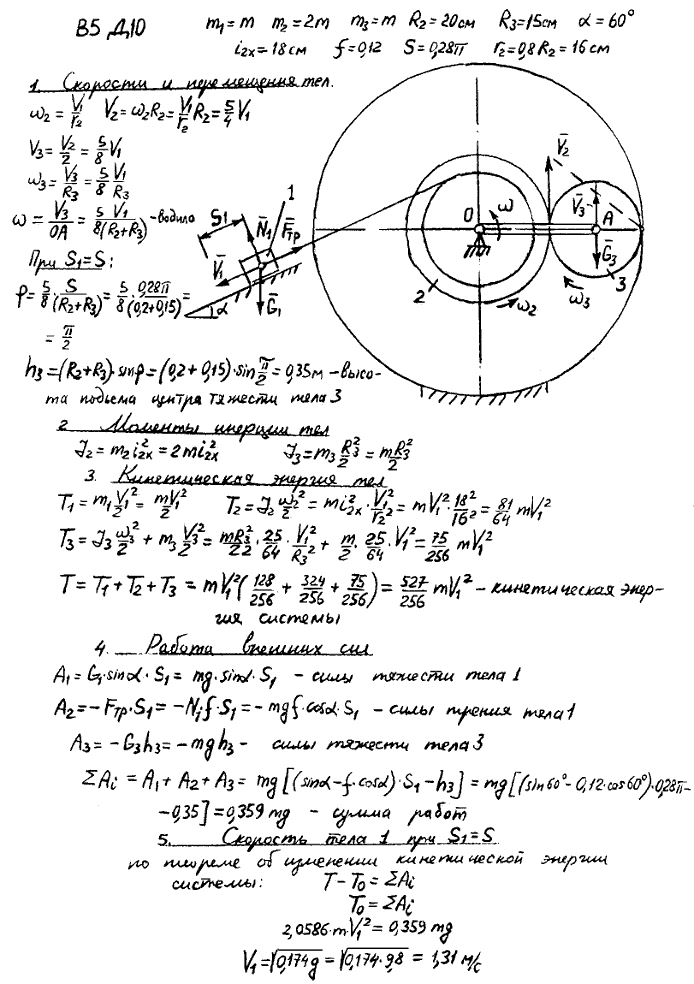 В5 Д10
m₁ = m m₂ = 2m m₃ = m R₂ = 20см R₃ = 15см α = 60°
i₂ₓ = 18см f = 0,12 S = 0,28π r₂ = 0,8R₂ = 16см
1. Скорости и перемещения тел.
ω₂ = V₁/r₂ V₂ = ω₂R₂ = V₁/r₂ R₂ = 5/4 V₁
V₃ = V₂/2 = 5/8 V₁
ω₃ = V₃/R₃ = 5/8 V₁/R₃
ω = V₃/OA = 5/8 V₁/(R₂+R₃) - водило
При S₁ = S:
φ = 5/8 S/(R₂+R₃) = 5/8 · 0,28π/(0,2+0,15) =
= π/2
S1
N̄₁
F̄тр
1
V̄₁
Ḡ₁
α
O
ω
A
V̄₂
V̄₃
Ḡ₃
2
ω₂
ω₃
3
h₃ = (R₂+R₃)·sinφ = (0,2+0,15)·sin π/2 = 0,35м - высо-
та подъема центра тяжести тела 3
2 Моменты инерции тел
J₂ = m₂i₂ₓ² = 2mi₂ₓ² J₃ = m₃ R₃²/2 = m R₃²/2
3. Кинетическая энергия тел
T₁ = m₁ V₁²/2 = mV₁²/2 T₂ = J₂ ω₂²/2 = mi₂ₓ² · V₁²/r₂² = mV₁² · 18²/16² = 81/64 mV₁²
T₃ = J₃ ω₃²/2 + m₃ V₃²/2 = mR₃²/2·2 · 25/64 · V₁²/R₃² + m/2 · 25/64 · V₁² = 75/256 mV₁²
T = T₁ + T₂ + T₃ = mV₁²(128/256 + 324/256 + 75/256) = 527/256 mV₁² - кинетическая энер-
гия системы
4. Работа внешних сил
A₁ = G₁·sinα·S₁ = mg·sinα·S₁ - силы тяжести тела 1
A₂ = -Fтр·S₁ = -N₁f·S₁ = -mgf·cosα·S₁ - силы трения тела 1
A₃ = -G₃h₃ = -mgh₃ - силы тяжести тела 3
ΣAi = A₁ + A₂ + A₃ = mg[(sinα - f·cosα)·S₁ - h₃] = mg[(sin60° - 0,12·cos60°)·0,28π-
-0,35] = 0,359 mg - сумма работ
5. Скорость тела 1 при S₁ = S
по теореме об изменении кинетической энергии
системы: T - T₀ = ΣAi
T₀ = ΣAi
2,0586·m·V₁² = 0,359 mg
V₁ = √0,174g = √0,174·9,8 = 1,31 м/с